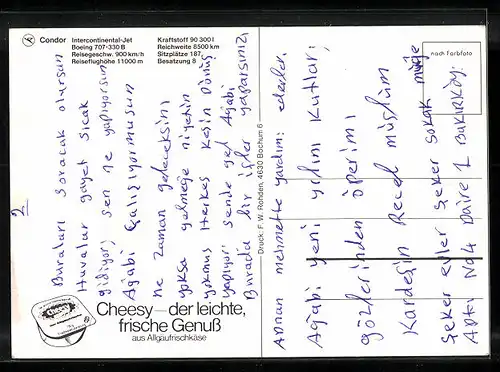 Condor
Intercontinental-Jet
Boeing 707-330 B
Reisegeschw. 900 km/h
Reiseflughöhe 11000 m
Kraftstoff 90 300 l
Reichweite 8500 km
Sitzplätze 187,
Besatzung 8
nach Farbfoto
2
Buraları soracak olursun
Havalar gayet sıcak
gidiyor; sen ne yapıyorsun
Agabi Çalışıyormusun
ne zaman geleceksin;
yoksa gelmeğe niyetin
yokmu; Herkes Kesin Dönüş
yapıyor; sende gel Agabi
Burada bir işler yaparsınız
Adnan mehmette yardım; ederler.
Agabi yeni yılını kutlar;
gözlerinden öperim;
Kardeşin Recel müslüm
Şeker evler Şeker Sokak müge
Aptı No 4 Daire 1 Bakırköy.
Cheesy — der leichte,
frische Genuß
aus Allgäufrischkäse
Druck: F. W. Rohden, 4630 Bochum 6